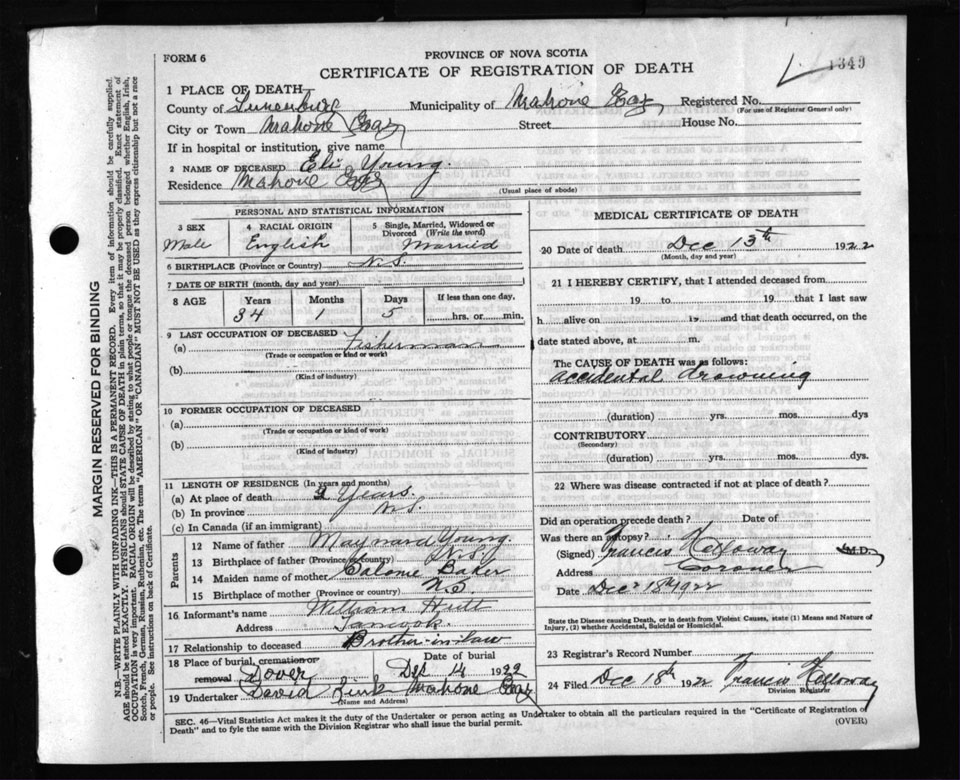 FORM 6
PROVINCE OF NOVA SCOTIA
CERTIFICATE OF REGISTRATION OF DEATH
1349
1 PLACE OF DEATH
County of Lunenburg Municipality of Mahone Bay Registered No.
(For use of Registrar General only)
City or Town Mahone Bay Street House No.
If in hospital or institution, give name
2 NAME OF DECEASED Eli Young.
Residence Mahone Bay
(Usual place of abode)
PERSONAL AND STATISTICAL INFORMATION
3 SEX 4 RACIAL ORIGIN 5 Single, Married, Widowed or Divorced (Write the word)
Male English Married
6 BIRTHPLACE (Province or Country) N.S.
7 DATE OF BIRTH (month, day and year)
8 AGE Years Months Days If less than one day,
34 1 5 hrs. or min.
9 LAST OCCUPATION OF DECEASED
(a) Fisherman
(Trade or occupation or kind of work)
(b)
(Kind of industry)
10 FORMER OCCUPATION OF DECEASED
(a)
(Trade or occupation or kind of work)
(b)
(Kind of industry)
11 LENGTH OF RESIDENCE (In years and months)
(a) At place of death Years.
(b) In province N.S.
(c) In Canada (if an immigrant)
Parents
12 Name of father Maynard Young.
13 Birthplace of father (Province or country) N.S.
14 Maiden name of mother Salome Baker
15 Birthplace of mother (Province or country) N.S.
16 Informant's name William Hutt
Address Tancook.
17 Relationship to deceased Brother-in-law
18 Place of burial, cremation or removal Dover Date of burial Dec 14 1922
19 Undertaker David Zink Mahone Bay
(Name and Address)
MEDICAL CERTIFICATE OF DEATH
20 Date of death Dec 13th 1922
(Month, day and year)
21 I HEREBY CERTIFY, that I attended deceased from
19 to 19 that I last saw
h alive on 19 and that death occurred, on
date stated above, at m.
The CAUSE OF DEATH was as follows:
accidental drowning
(duration) yrs. mos. dys
CONTRIBUTORY
(Secondary)
(duration) yrs. mos. dys.
22 Where was disease contracted if not at place of death?
Did an operation precede death? Date of
Was there an autopsy?
(Signed) Francis Holloway M.D.
Address Coroner
Date Dec 18th 1922
State the Disease causing Death, or in death from Violent Causes, state (1) Means and Nature of
Injury, (2) whether Accidental, Suicidal or Homicidal.
23 Registrar's Record Number
24 Filed Dec 18th 1922 Francis Holloway
Division Registrar
SEC. 46—Vital Statistics Act makes it the duty of the Undertaker or person acting as Undertaker to obtain all the particulars required in the "Certificate of Registration of
Death" and to fyle the same with the Division Registrar who shall issue the burial permit.
(OVER)
MARGIN RESERVED FOR BINDING
N.B.—WRITE PLAINLY WITH UNFADING INK—THIS IS A PERMANENT RECORD. Every item of information should be carefully supplied.
AGE should be stated EXACTLY. PHYSICIANS should STATE CAUSE OF DEATH in plain terms, so that it may be properly classified. Exact statement of
OCCUPATION is very important. RACIAL ORIGIN will be described by stating to what people or tongue the deceased person belonged whether English, Irish,
Scotch, French, German, Russian, Ruthenian, etc. The terms "AMERICAN" or "CANADIAN" MUST NOT BE USED as they express citizenship but not a race
or people. See instructions on back of Certificate.